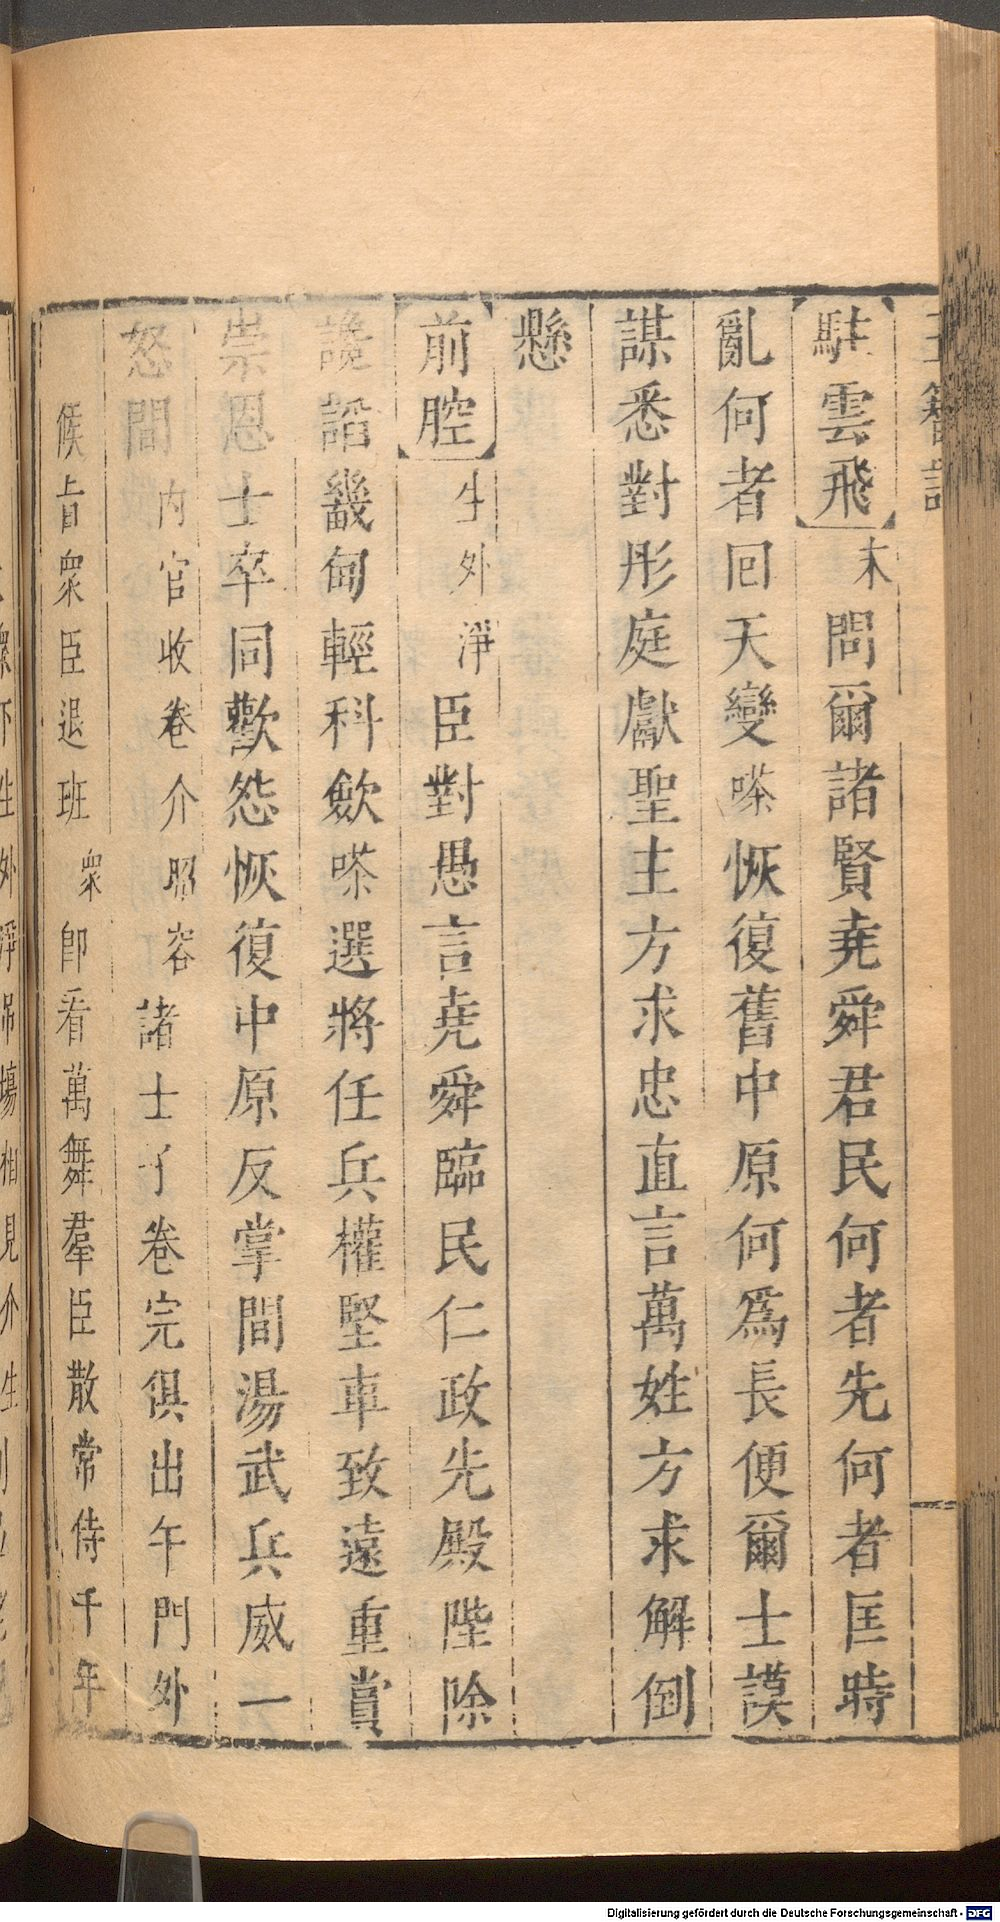 玉簪記
駐雲飛 末 問爾諸賢堯舜君民何者先何者匡時
亂何者回天變嗏恢復舊中原何爲長便爾士謨
謀悉對彤庭獻聖主方求忠直言萬姓方求解倒
懸
前腔 生外淨 臣對愚言堯舜臨民仁政先殿陛除
讒諂畿甸輕科斂嗏選將任兵權堅車致遠重賞
崇恩士卒同歡怨恢復中原反掌間湯武兵威一
怒間 內官收卷介照容 諸士子卷完俱出午門外
候旨衆臣退班 衆 卽看萬舞羣臣散常侍千年
下生外淨吊塲相見介生
Digitalisierung gefördert durch die Deutsche Forschungsgemeinschaft - DFG